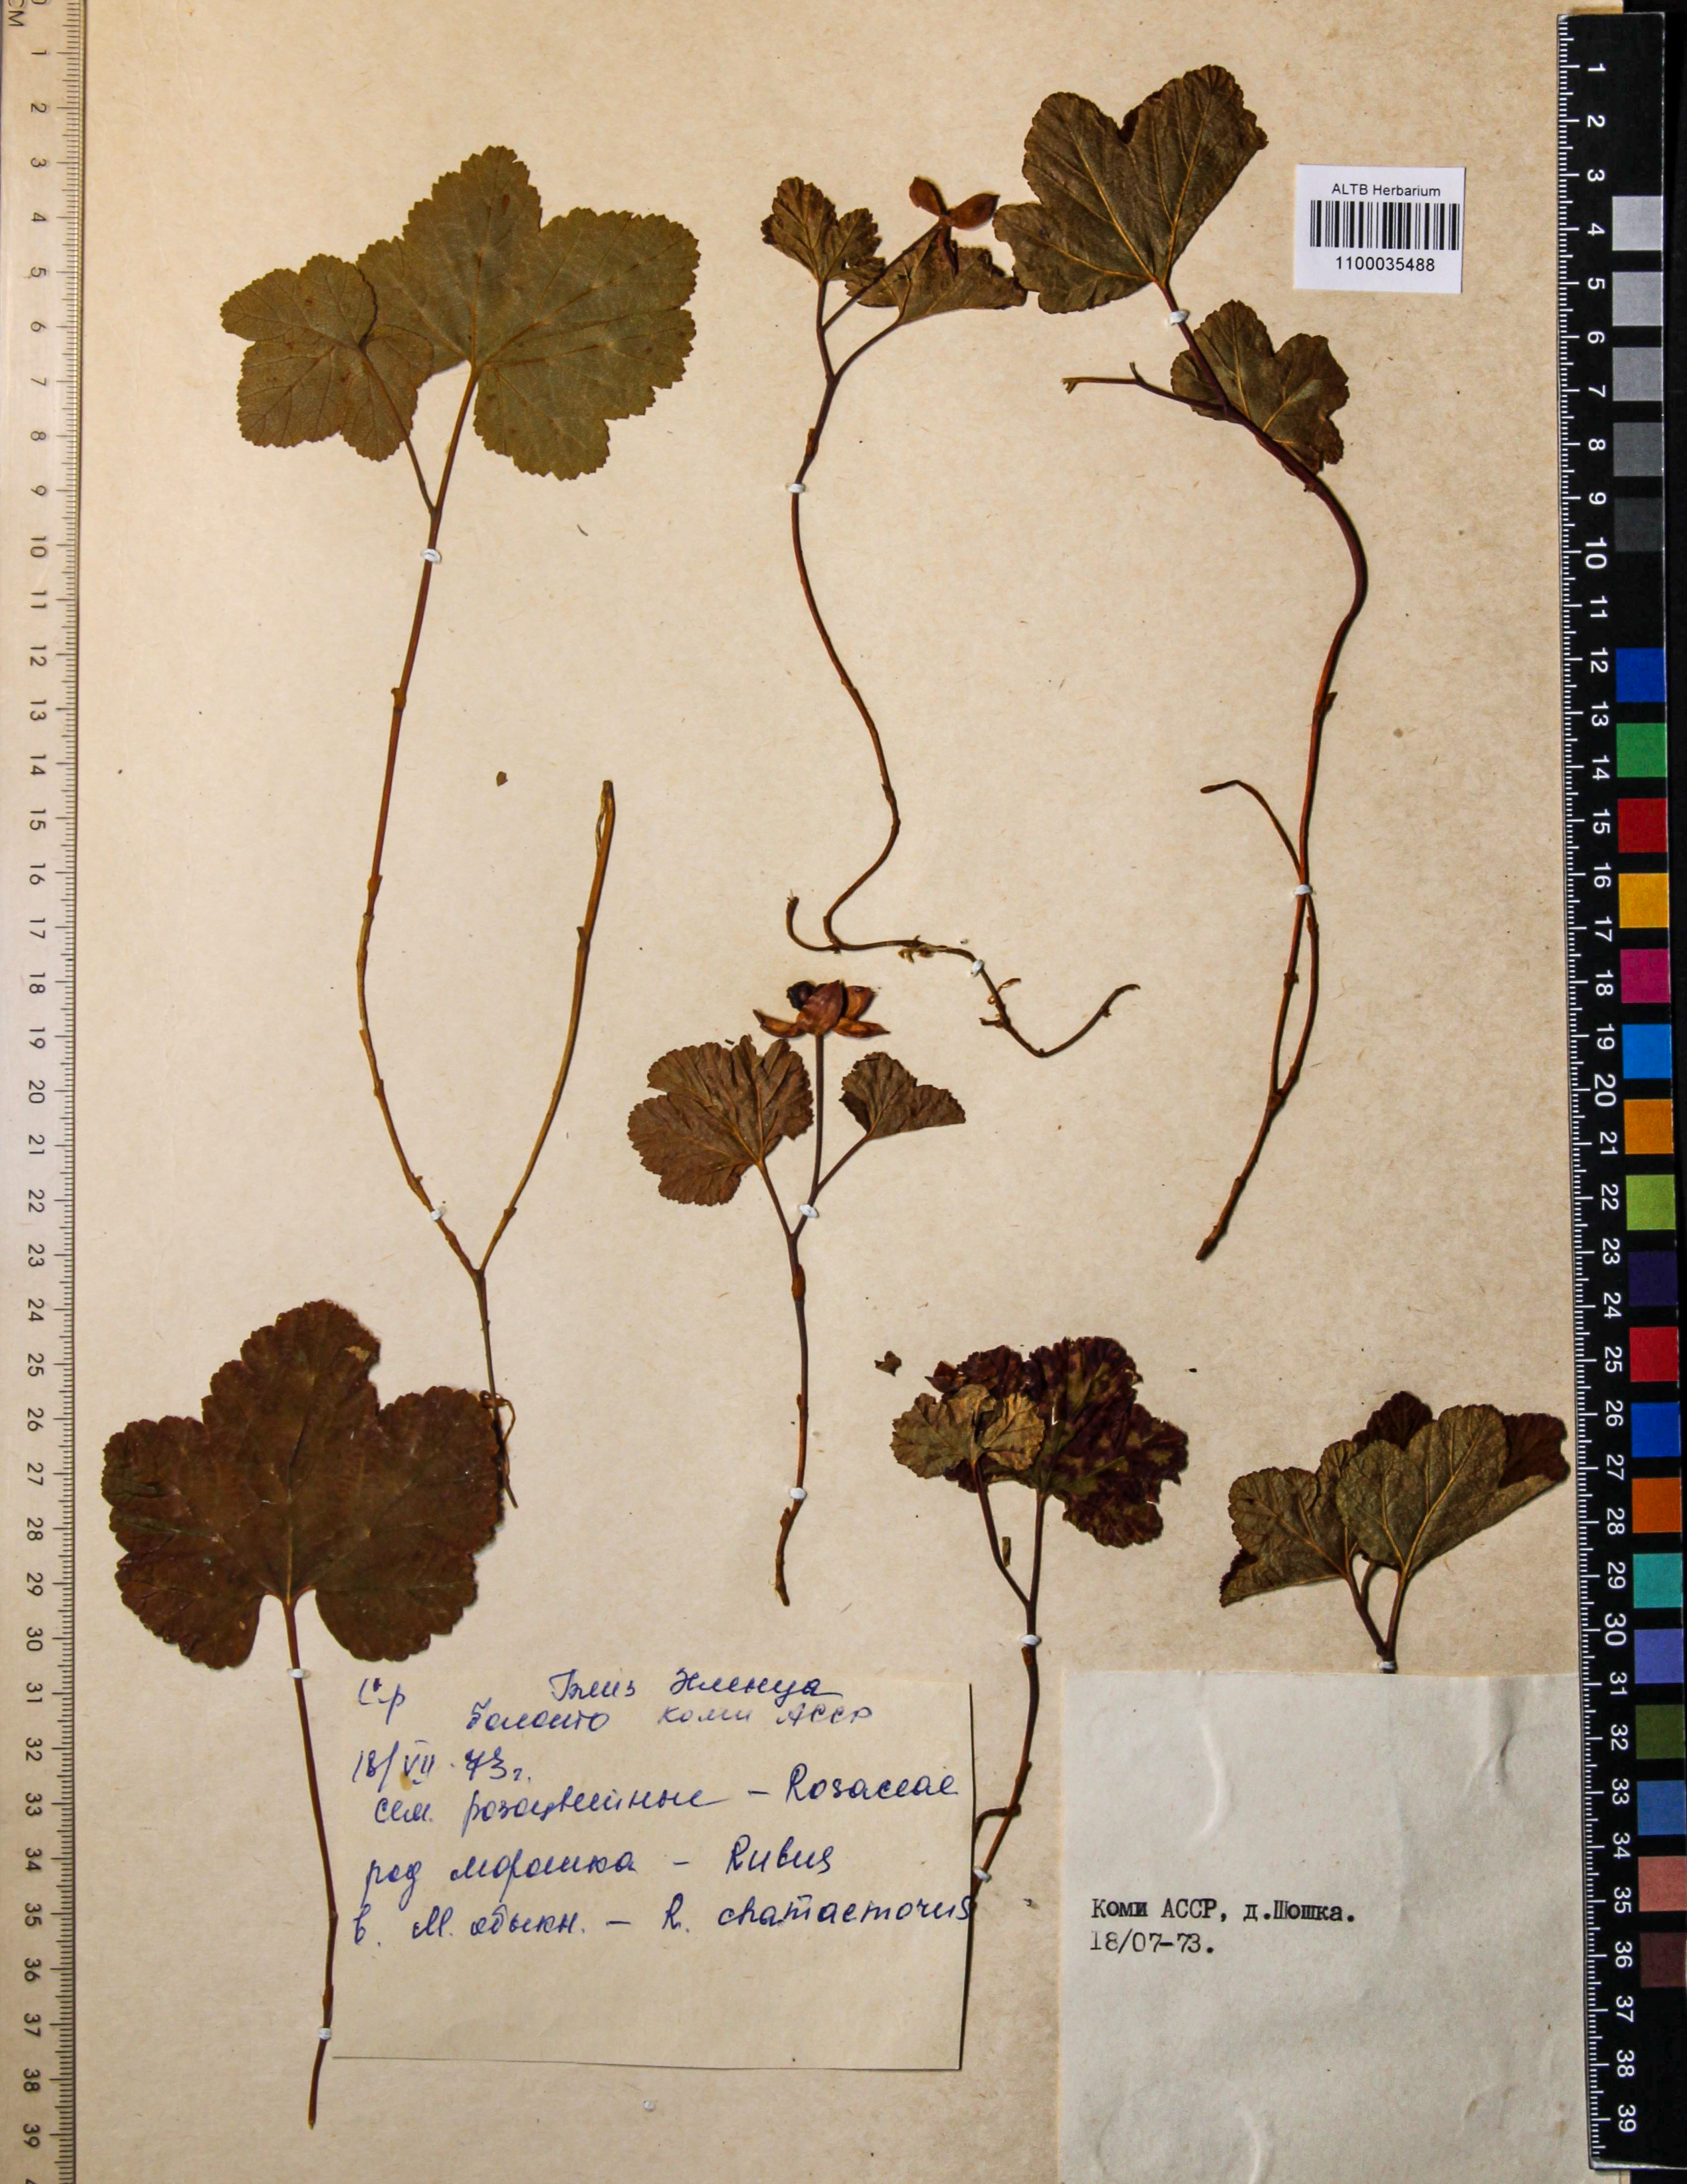 ALTB Herbarium
1100035488
Близ
болото Коми АССР
18/VII 73г.
сем. розоцветные – Rosaceae
род морошка – Rubus
в. М. обыкн. – R. chamaemorus
Коми АССР, д.Шошка.
18/07-73.
CM
0
1
2
3
4
5
6
7
8
9
10
11
12
13
14
15
16
17
18
19
20
21
22
23
24
25
26
27
28
29
30
31
32
33
34
35
36
37
38
39
1
2
3
4
5
6
7
8
9
10
11
12
13
14
15
16
17
18
19
20
21
22
23
24
25
26
27
28
29
30
31
32
33
34
35
36
37
38
39